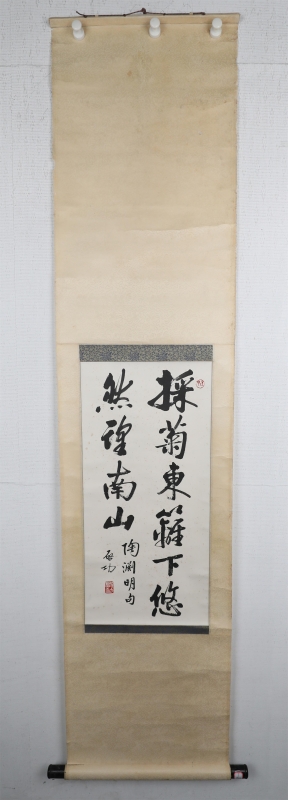 採菊東籬下悠
然朢南山
陶淵明句
启功